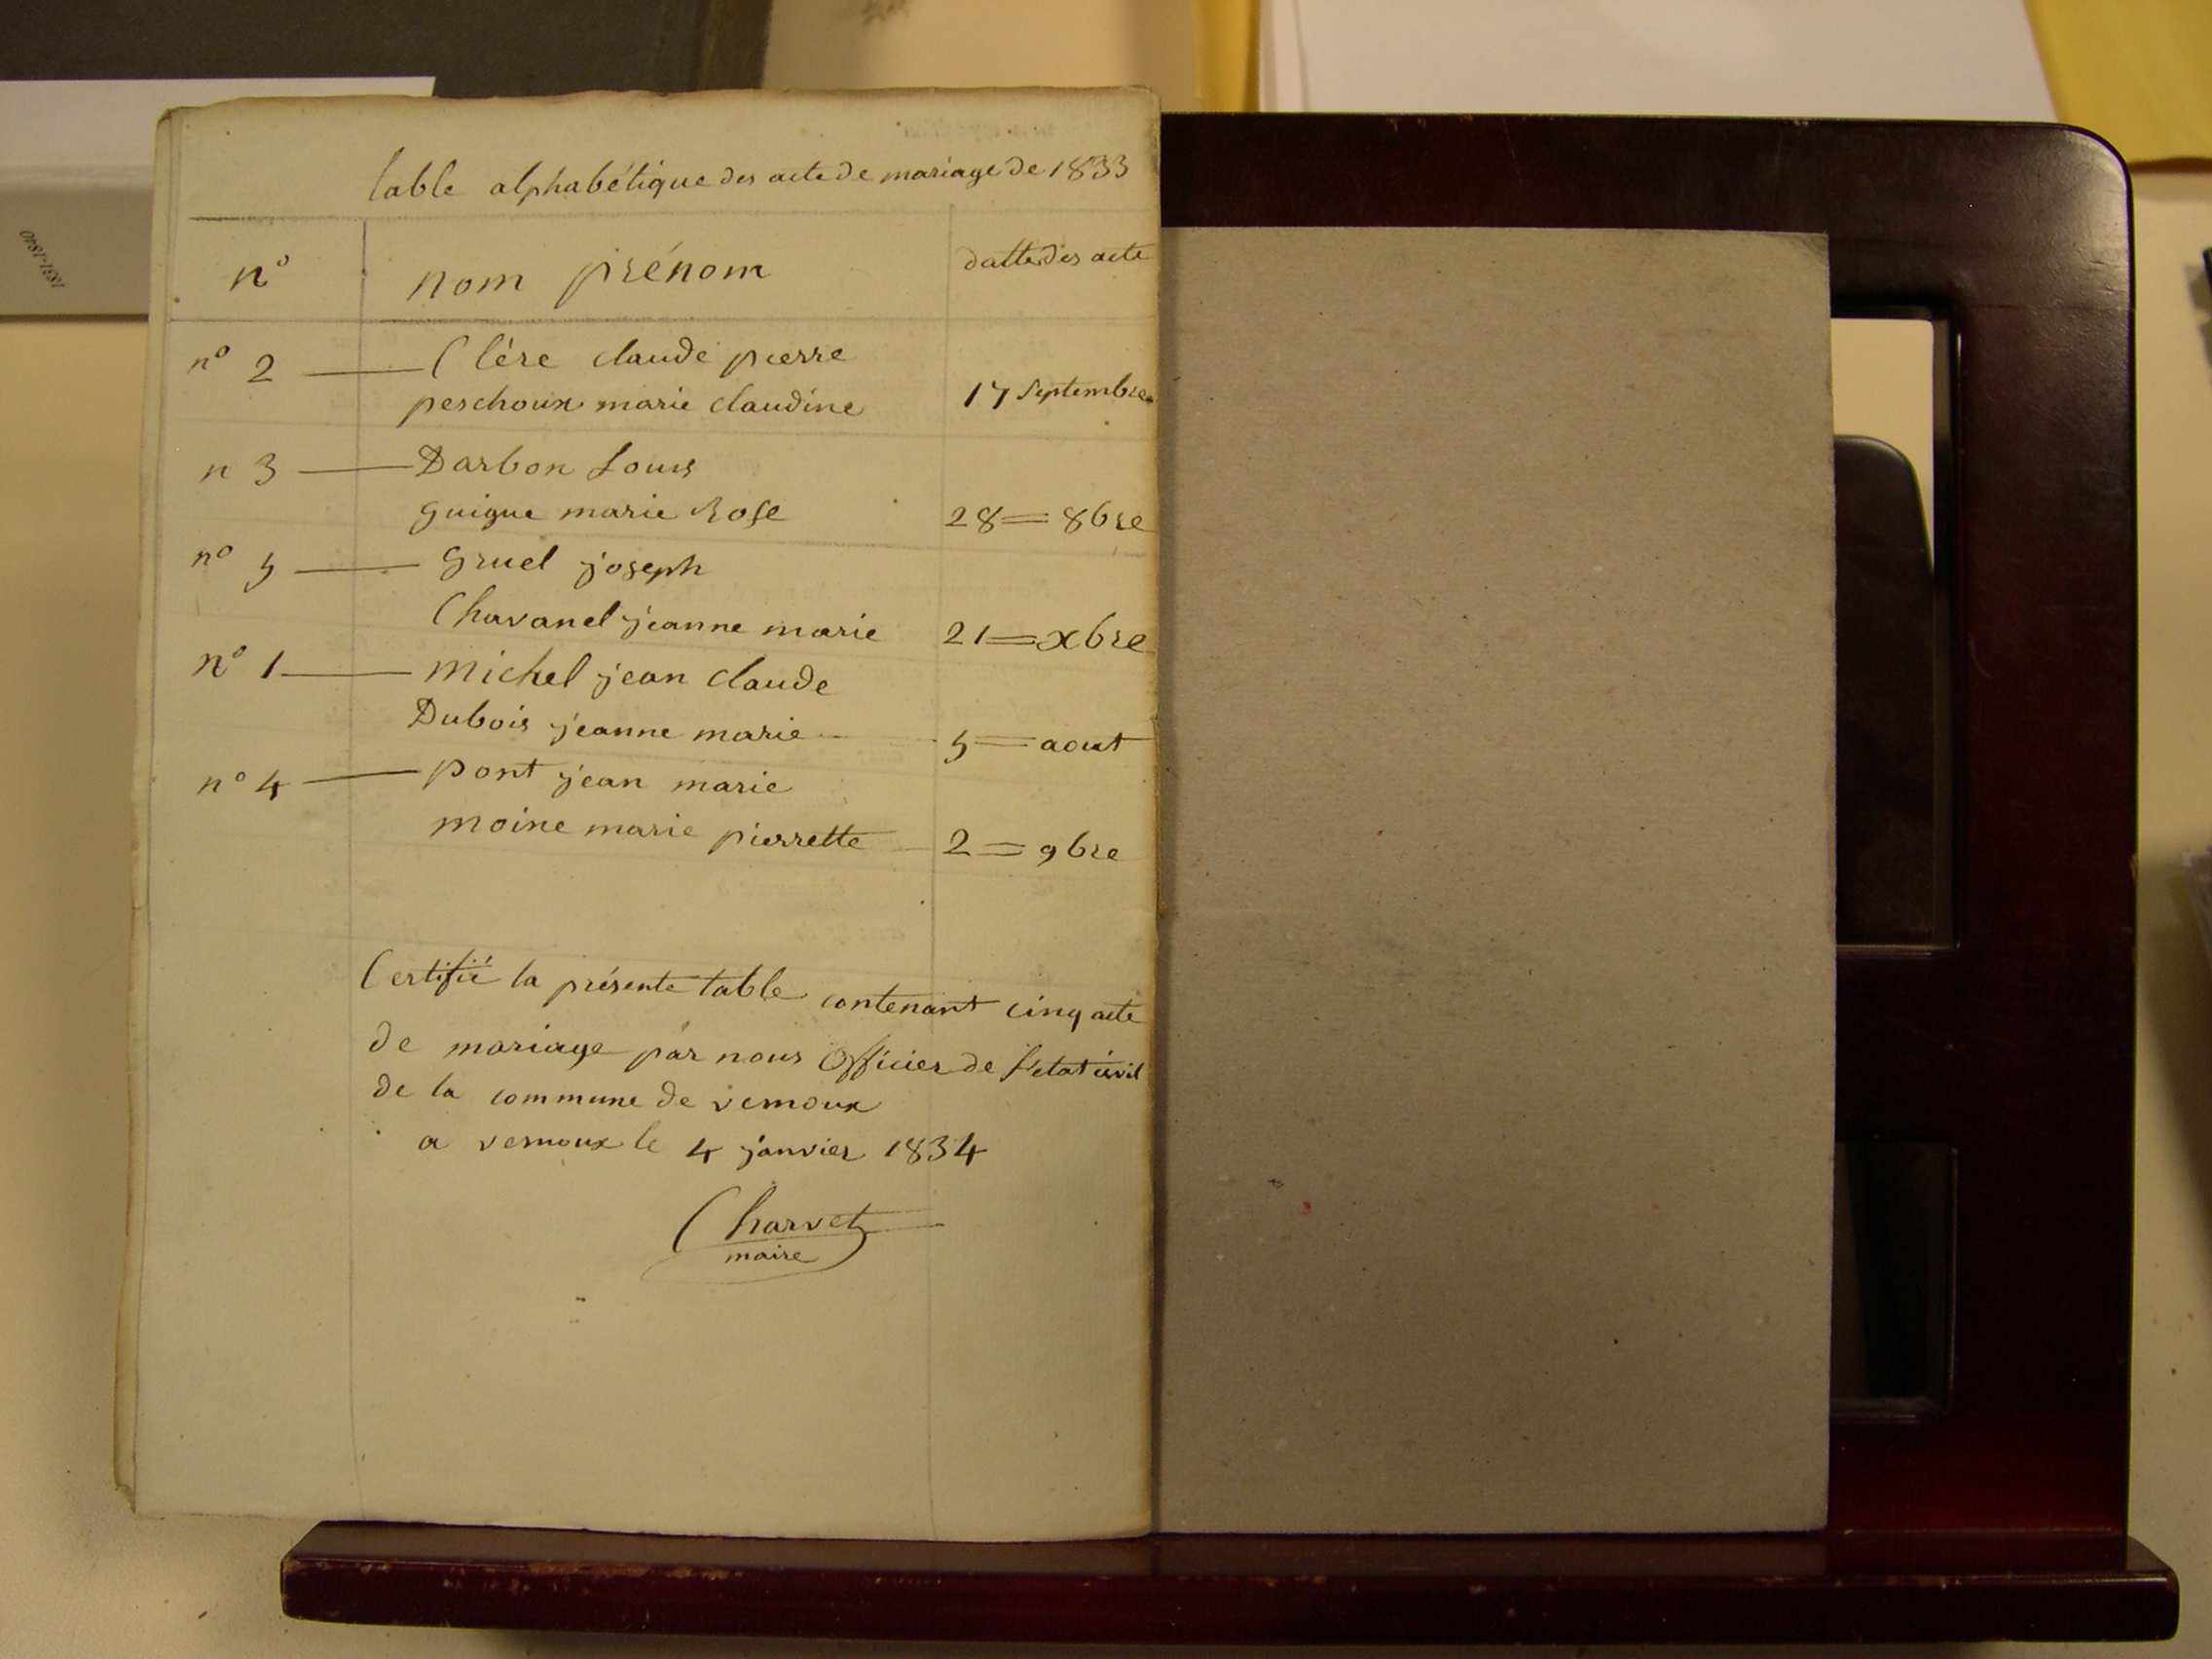 table alphabétique des acte de mariage de 1833
n° nom prénom datte des acte
n° 2 Clére claude pierre
peschoux marie claudine 17 Septembre
n 3 Darbon Louis
guigue marie Rose 28 = 8bre
n° 5 gruel joseph
Chavanel jeanne marie 21 = xbre
n° 1 michel jean claude
Dubois jeanne marie 5 = aout
n° 4 pont jean marie
moine marie pierrette 2 = 9bre
Certifié la présente table contenant cinq acte
de mariage par nous Officier de l'etat civil
de la commune de vernoux
a vernoux le 4 janvier 1834
Charvet
maire
1831-1840